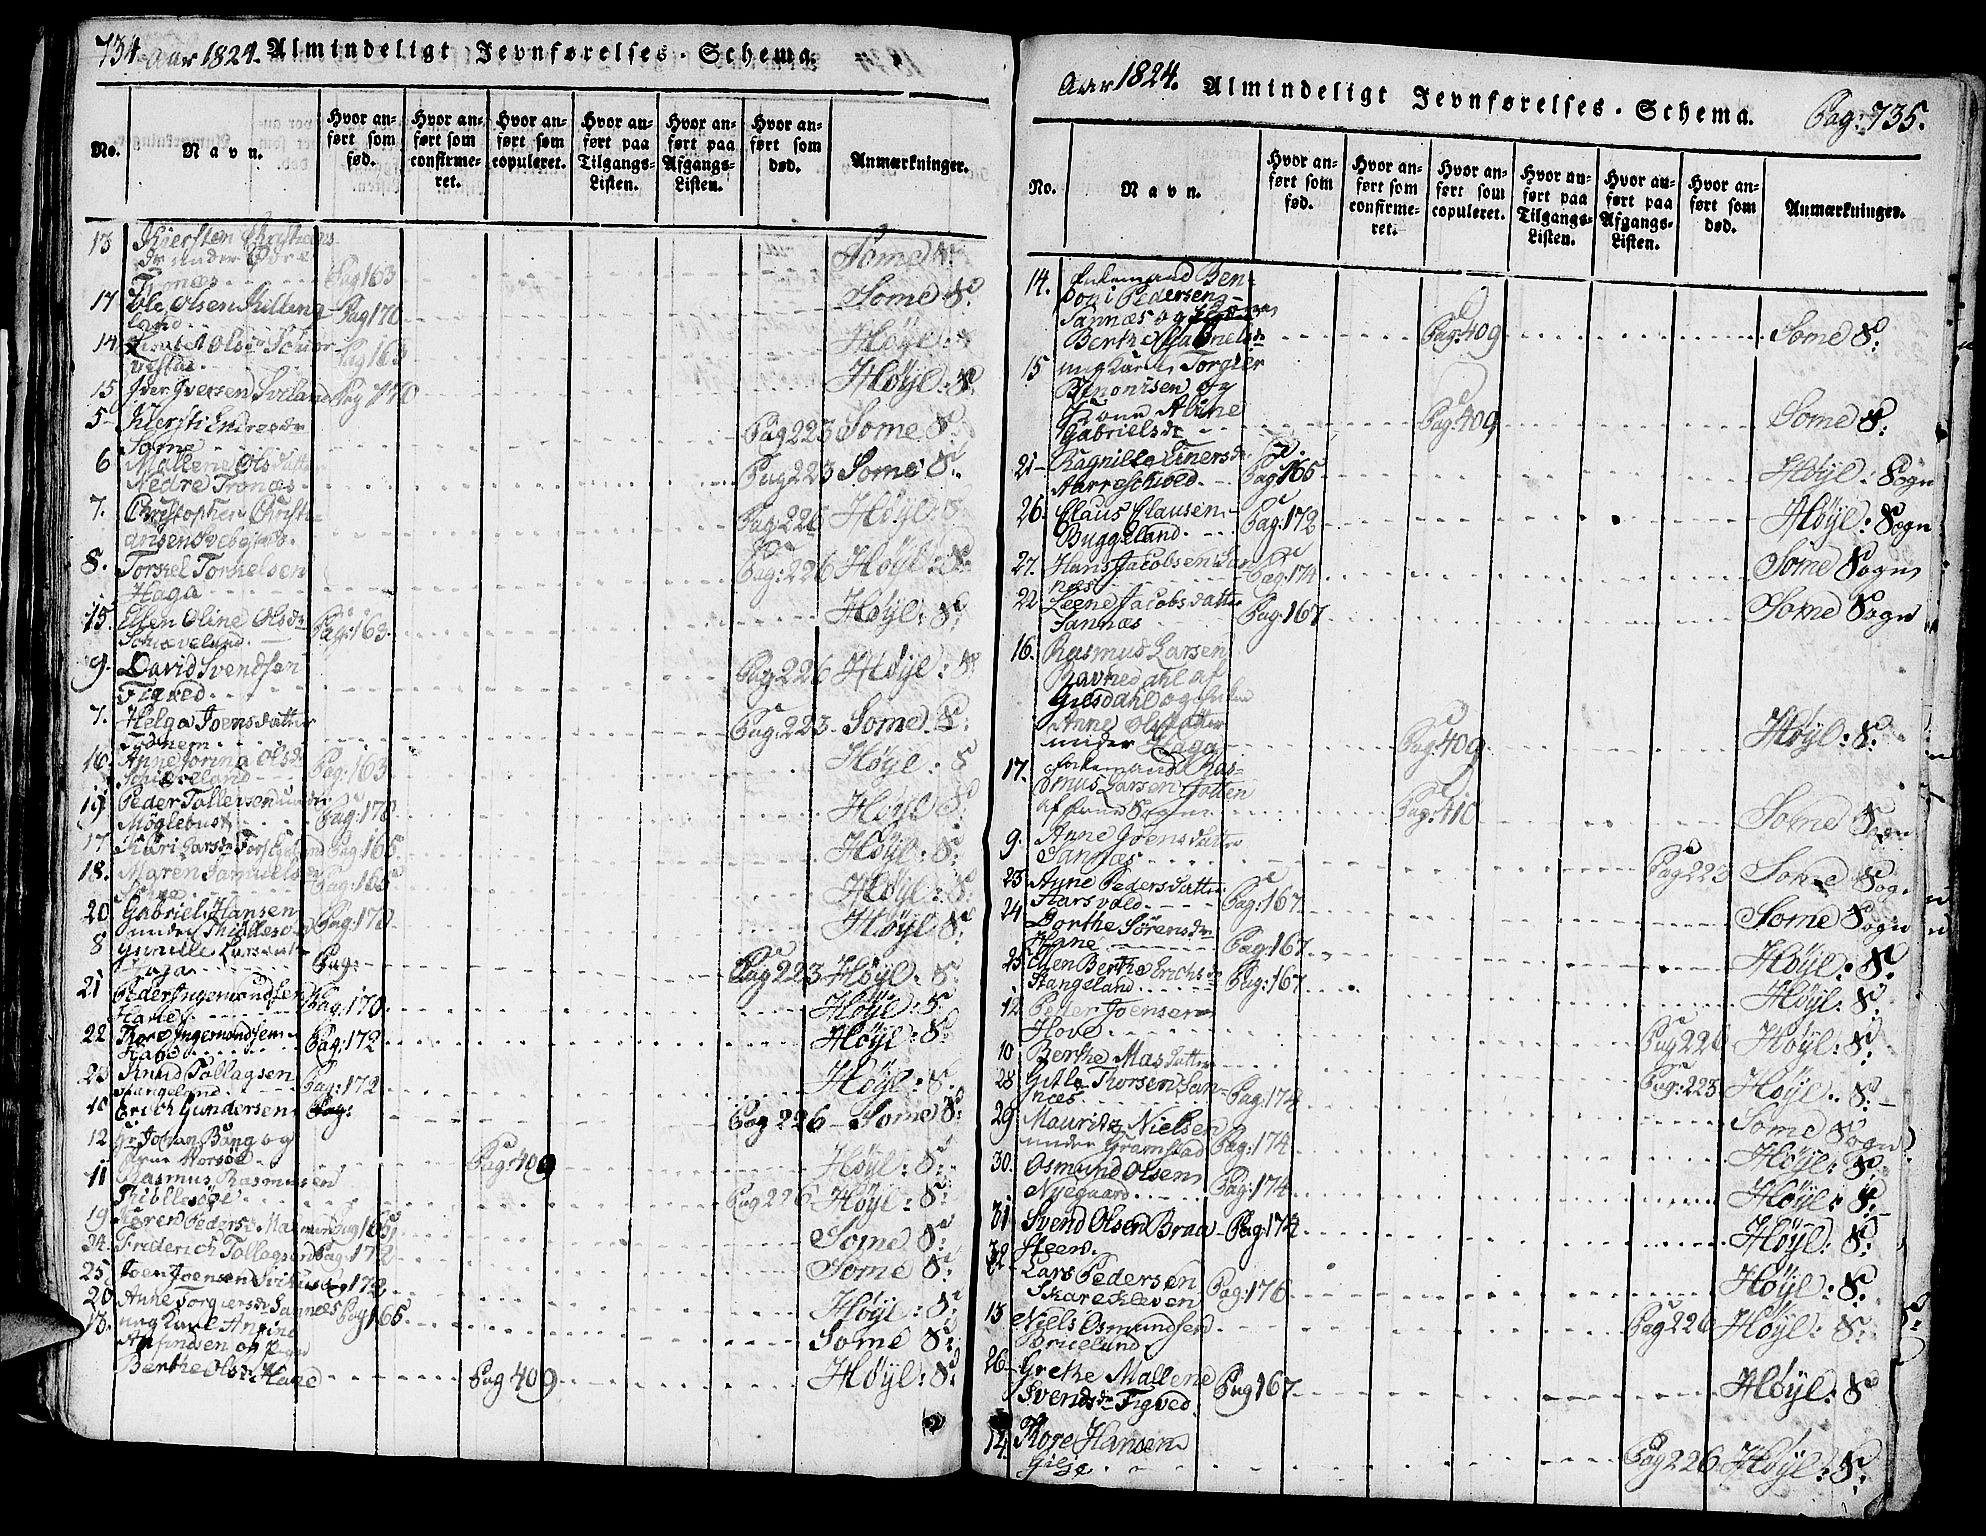 734. Aar 1824. Almindeligt Jevnførelses-Schema.
No.
Navn.
Hvor anført som fød.
Hvor anført som confirmeret.
Hvor anført som copuleret.
Hvor anført paa Tilgangs-Listen.
Hvor anført paa Afgangs-Listen.
Hvor anført som død.
Anmærkninger.
13 Kiersten Christians-
dr under Ødre
Tronæs Pag 163 Some S:
17 Ole Olsen Killing-
land Pag 170 Some S:
14 Lisabet Olsdr
Pag 163 Høyl: S:
15 Iver Iversen Sviland Pag 170 Høyl: S:
5 Kiersti Endresdr
Some Pag 223 Some S:
6 Mallene Olsdatter
Nedre Tronæs Pag 223 Some S:
7. Christopher Christi-
ansen Pag 226 Høyl: S:
8. Torkel Torkelsen
Haga Pag: 226 Høyl: S:
15. Ellen Oline Olsdr
Schaveland Pag: 163 Høyl: S:
9. David Svendsen
Figved Pag 226 Høyl: S:
7. Helga Joensdatter
Pag: 223 Some S:
16 Anne Jorina Olsdr
Schiæveland Pag: 163 Høyl: S
19 Peder Tollersen under
Møglebust Pag: 170 Høyl: S:
17 Kari Larsdr Pag 165 Høyl: S:
18. Maren Samuelsdr
Pag: 165 Høyl: S:
20 Gabriel Hansen
under Pag: 170 Høyl S:
8 Gunille Larsdatter
Haga Pag: Pag 223 Høyl: S:
21 Peder Ingemundsen
Hane Pag: 170 Høyl: S:
22 Tore Ingemundsen
Hane Pag: 172 Høyl: S:
23 Knud Tollagsen
Stangeland Pag: 172 Høyl: S:
10 Erich Gundersen Pag: Pag 226 Some S:
12 Johan Bang og
Pag: 409 Høyl: S:
11 Rasmus Rasmussen
Pag 226 Høyl: S:
19 Karen Pedersdr Pag 165 Some S:
24. Friderich Tollagsen Pag: 172 Some S:
25. Joen Joensen 172 Høyl: S:
20 Anne Torgiersdr Sannæs Pag 165 Some S:
13. ung Karl
Anfindsen og Pige
Berthe Olsdr Hane Pag 409 Høyl: S:
Aar 1824. Almindeligt Jevnførelses-Schema. Pag: 735.
No.
Navn.
Hvor anført som fød.
Hvor anført som confirmeret.
Hvor anført som copuleret.
Hvor anført paa Tilgangs-Listen.
Hvor anført paa Afgangs-Listen.
Hvor anført som død.
Anmærkninger.
14. Enkemand Ben-
doni Pedersen
Sannæs og
Berthe Gabrielsdr Pag: 409 Some S:
15 ung Karl Torgier
Benonisen og
Abine
Gabrielsdr Pag: 409 Some S:
21 Ragnille Einersdr
Pag 165 Høyl: Sogn
26. Claus Clausen
Buggeland Pag: 172 Høyl: Sogn
27. Hans Jacobsen San-
næs Pag: 174 Some Sogn
22 Leene Jacobsdatter
Sannæs Pag: 167 Some Sogn
16. Rasmus Larsen
Ravnedahl af
Giesdahl og Enken
Anne Olsdatter
under Haga Pag: 409 Høyl: S:
17. Enkemand Ras-
mus Larsen
Sogn Pag: 410 Some Sogn
9. Anne
Sannæs Pag 223 Some Sogn
23 Anne Pedersdatter
Pag: 167 Some Sogn
24 Dorthe Sørensdr
Hane Pag: 167 Høyl: S:
25 Ellen Berthe Erichsdr
Stangeland Pag: 167 Høyl: S:
12 Peder Joensen
Hove Pag 226 Høyl: S:
10 Berthe Masdatter Pag: 223 Høyl: S:
28 Gitle Thorsen San-
næs Pag: 174 Some Sogn
29 Mauritz Nielsen
under Gramstad Pag: 174 Høyl: S:
30. Osmund Olsen
Nygaard Pag: 174 Høyl: S:
31 Svend Olsen Braa-
Steen Pag: 174 Høyl: S:
32 Lars Pedersen
Skarekleven Pag: 176 Høyl: S:
13 Niels Osmundsen
Pag 226 Høyl: S:
26 Grethe Mallene
Svendsdr Figved Pag 167 Høyl: S:
14. Tore Hansen
Gilje Pag 226 Høyl: S: